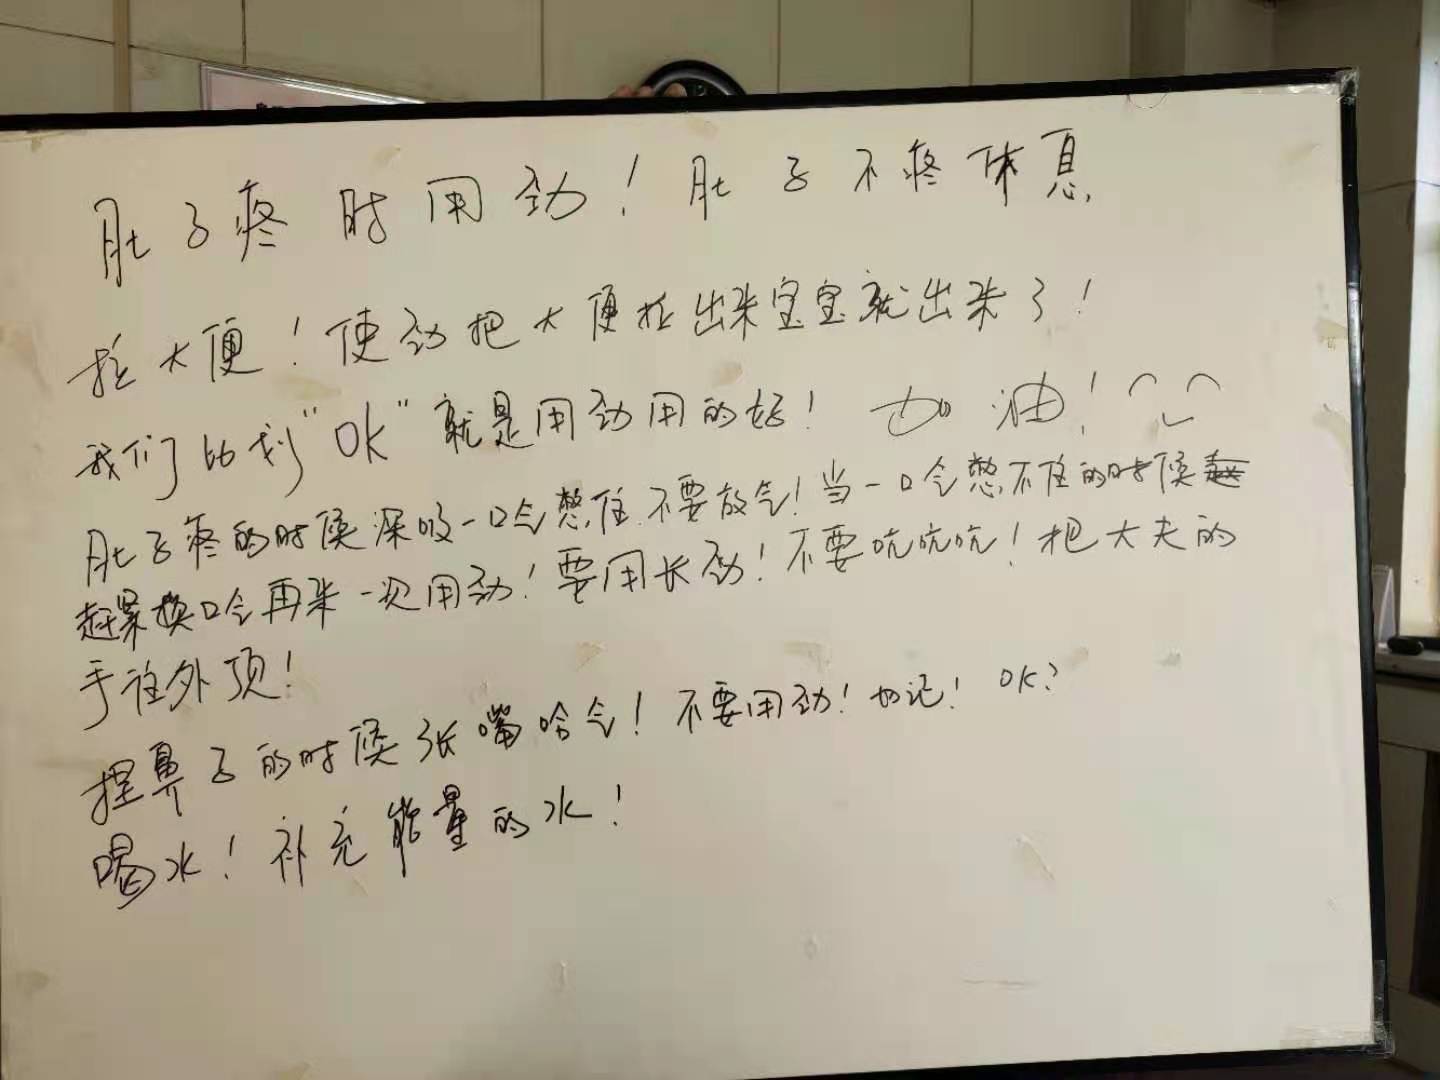 肚子疼时用劲！肚子不疼休息
拉大便！使劲把大便拉出来宝宝就出来了！
我们比划"OK"就是用劲用的好！加油！
肚子疼的时候深吸一口气憋住不要放气！当一口气憋不住的时候
赶紧换口气再来一次用劲！要用长劲！不要吭吭吭！把大夫的
手往外顶！
捏鼻子的时候张嘴哈气！不要用劲！切记！OK？
喝水！补充能量的水！